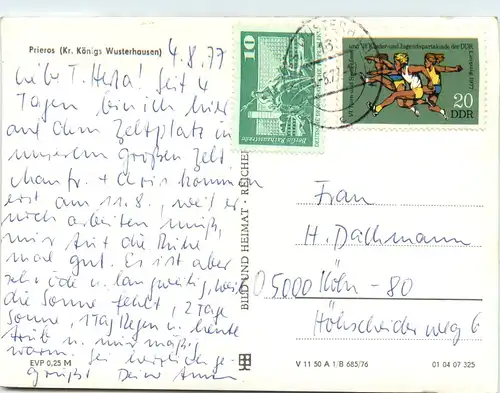 Prieros (Kr. Königs Wusterhausen)
4.8.77
liebe T. Herta. Seit 4
Tagen bin ich hier
auf dem Zeltplatz in
unserem großen Zelt
+ kommen
erst am 11.8., weil er
noch arbeiten muß,
mir tut die Ruhe
mal gut. Es ist aber
sehr öde u. langweilig, weil
die Sonne fehlt, 2 Tage
Sonne, 1 Tag Regen u. heute
trüb u. nur mäßig
warm. Sei herzlich ge-
grüßt Deine
EVP 0,25 M
BILD UND HEIMAT · REICHEN
10
Berlin Rathausstraße
und VI. Kinder- und Jugendspartakiade der DDR
Leipzig 1977
20
DDR
Frau
H. Dachmann
05000 Köln - 80
Höhscheider weg 6
V 11 50 A 1/B 685/76
01 04 07 325